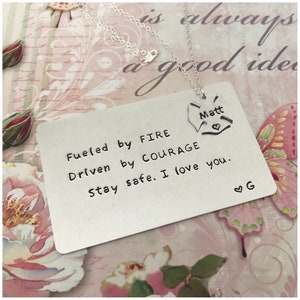 is always
a good idea
Matt
Fueled by FIRE
Driven by COURAGE
Stay safe. I love you.
♥G